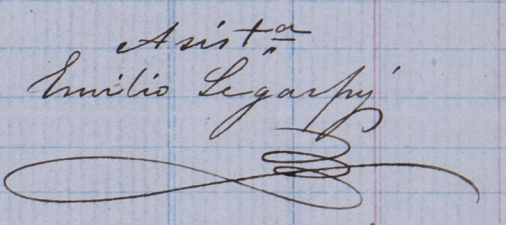 Asist.ª
Emilio Legarpy